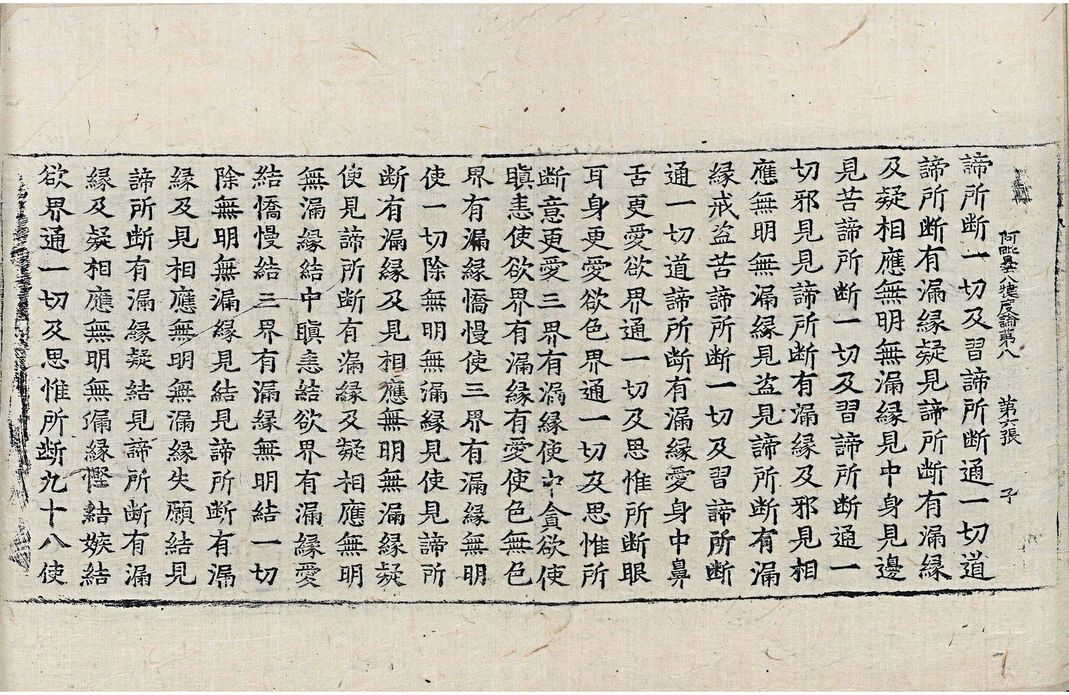 阿毗曇八揵度論第八 第六張 子
諦所断一切及習諦所断通一切道
諦所断有漏縁疑見諦所断有漏縁
及疑相應無明無漏縁見中身見邊
見苦諦所断一切及習諦所断通一
切邪見見諦所断有漏縁及邪見相
應無明無漏縁見盗見諦所断有漏
縁戒盗苦諦所断一切及習諦所断
通一切道諦所断有漏縁愛身中鼻
舌更愛欲界通一切及思惟所断眼
耳身更愛欲色界通一切及思惟所
断意更愛三界有漏縁使中貪欲使
瞋恚使欲界有漏縁有愛使色無色
界有漏縁憍慢使三界有漏縁無明
使一切除無明無漏縁見使見諦所
断有漏縁及見相應無明無漏縁疑
使見諦所断有漏縁及疑相應無明
無漏縁結中瞋恚結欲界有漏縁愛
結憍慢結三界有漏縁無明結一切
除無明無漏縁見結見諦所断有漏
縁及見相應無明無漏縁失願結見
諦所断有漏縁疑結見諦所断有漏
縁及疑相應無明無漏縁慳結嫉結
欲界通一切及思惟所断九十八使